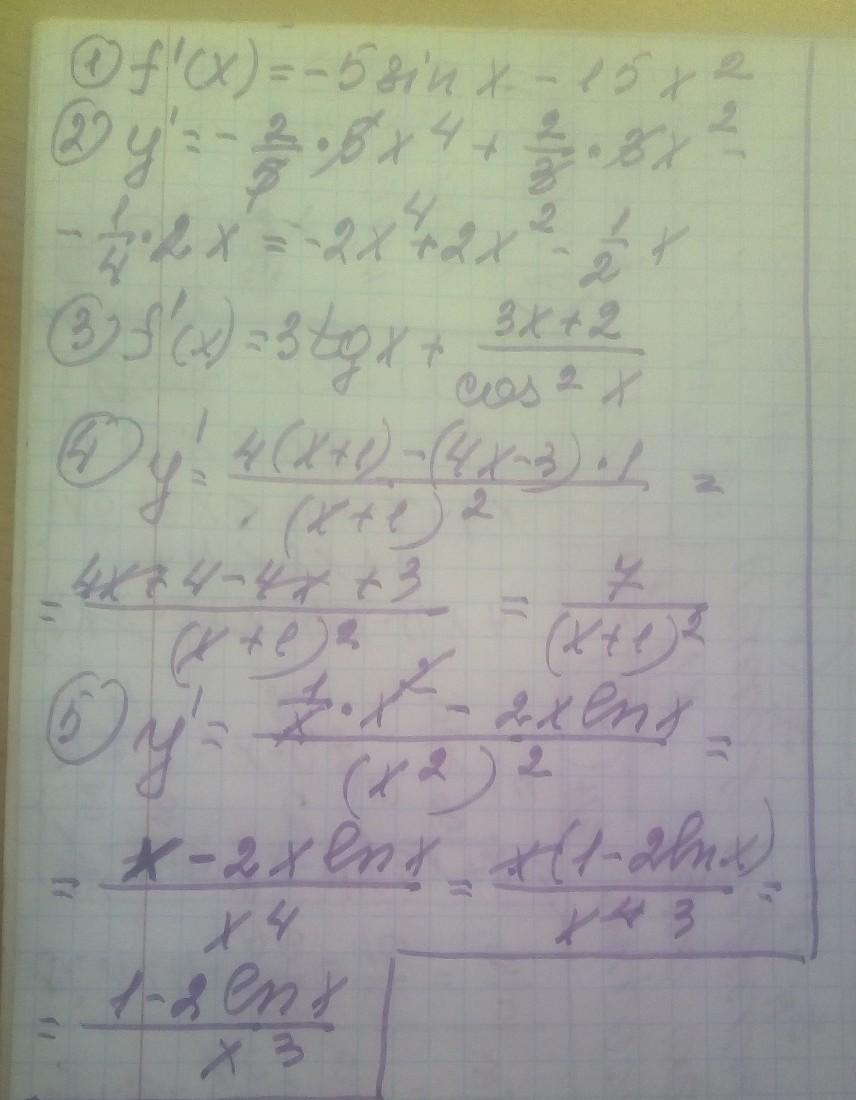 ① f'(x) = -5 sin x - 15x²
② y' = - 2/5 · 5x⁴ + 2/3 · 3x² -
- 1/4 · 2x = -2x⁴ + 2x² - 1/2 x
③ f'(x) = 3 tg x + (3x+2)/(cos² x)
④ y' = (4(x+1) - (4x-3) · 1)/((x+1)²) =
= (4x + 4 - 4x + 3)/((x+1)²) = 7/((x+1)²)
⑤ y' = (1/x · x² - 2x ln x)/((x²)²) =
= (x - 2x ln x)/(x⁴) = (x(1 - 2 ln x))/(x⁴ ³) =
= (1 - 2 ln x)/(x³)